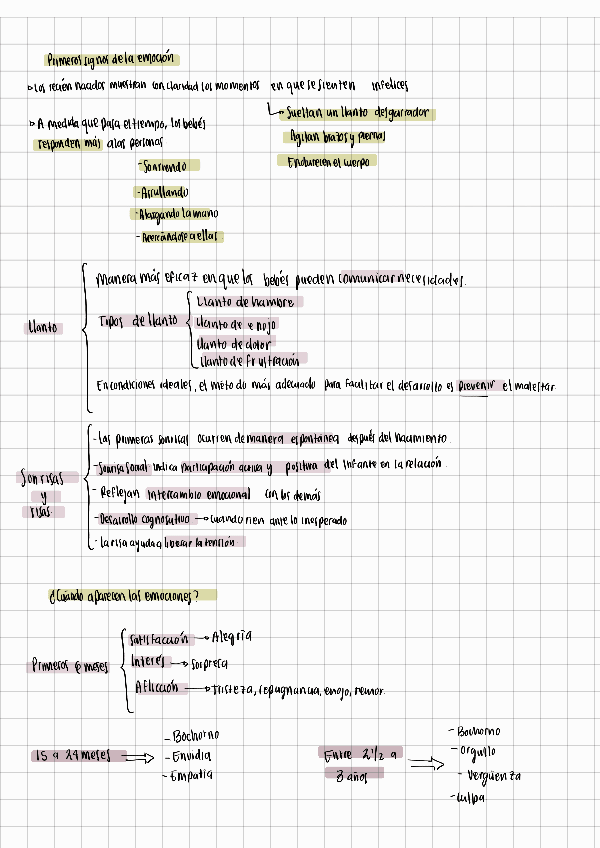 Primeros signos de la emoción
Los recién nacidos muestran con claridad los momentos en que se sienten infelices
Sueltan un llanto desgarrador
Agitan brazos y piernas
Endurecen el cuerpo
A medida que pasa el tiempo, los bebés
responden más a las personas
- Sonriendo
- Arrullando
- Alargando la mano
- Acercándose a ellas
Llanto
Manera más eficaz en que los bebés pueden comunicar necesidades.
Tipos de llanto
Llanto de hambre
Llanto de enojo
Llanto de dolor
Llanto de frustración
En condiciones ideales, el método más adecuado para facilitar el desarrollo es prevenir el malestar.
Sonrisas
y
risas
- Las primeras sonrisas ocurren de manera espontánea después del nacimiento.
- Sonrisa social indica participación activa y positiva del infante en la relación
- Reflejan intercambio emocional con los demás
- Desarrollo cognoscitivo → cuando rien ante lo inesperado
- La risa ayuda a liberar la tensión
¿Cuándo aparecen las emociones?
Primeros 6 meses
Satisfacción → Alegría
Interés → Sorpresa
Aflicción → tristeza, repugnancia, enojo, temor.
15 a 24 meses ⇒
- Bochorno
- Envidia
- Empatía
Entre 2 1/2 a
3 años ⇒
- Bochorno
- orgullo
- vergüenza
- culpa